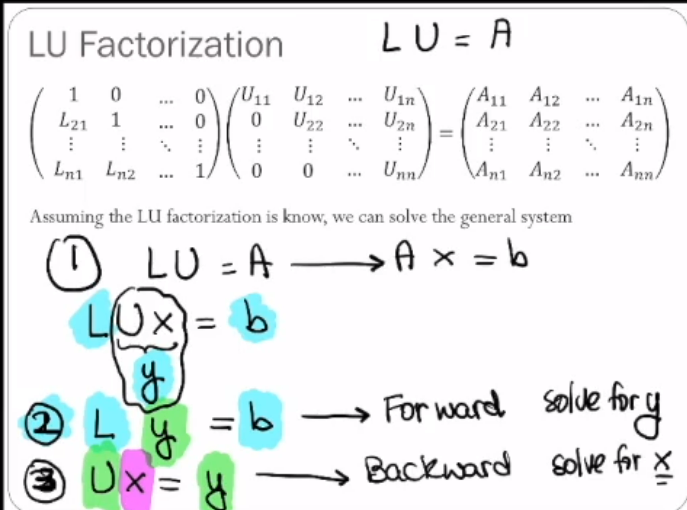 LU Factorization LU = A
1 0 ... 0 U11 U12 ... U1n A11 A12 ... A1n
L21 1 ... 0 0 U22 ... U2n = A21 A22 ... A2n
⋮ ⋮ ⋱ ⋮ ⋮ ⋮ ⋱ ⋮ ⋮ ⋮ ⋱ ⋮
Ln1 Ln2 ... 1 0 0 ... Unn An1 An2 ... Ann
Assuming the LU factorization is know, we can solve the general system
① LU = A → A x = b
LUx = b
y
② L y = b → Forward solve for y
③ Ux = y → Backward solve for x